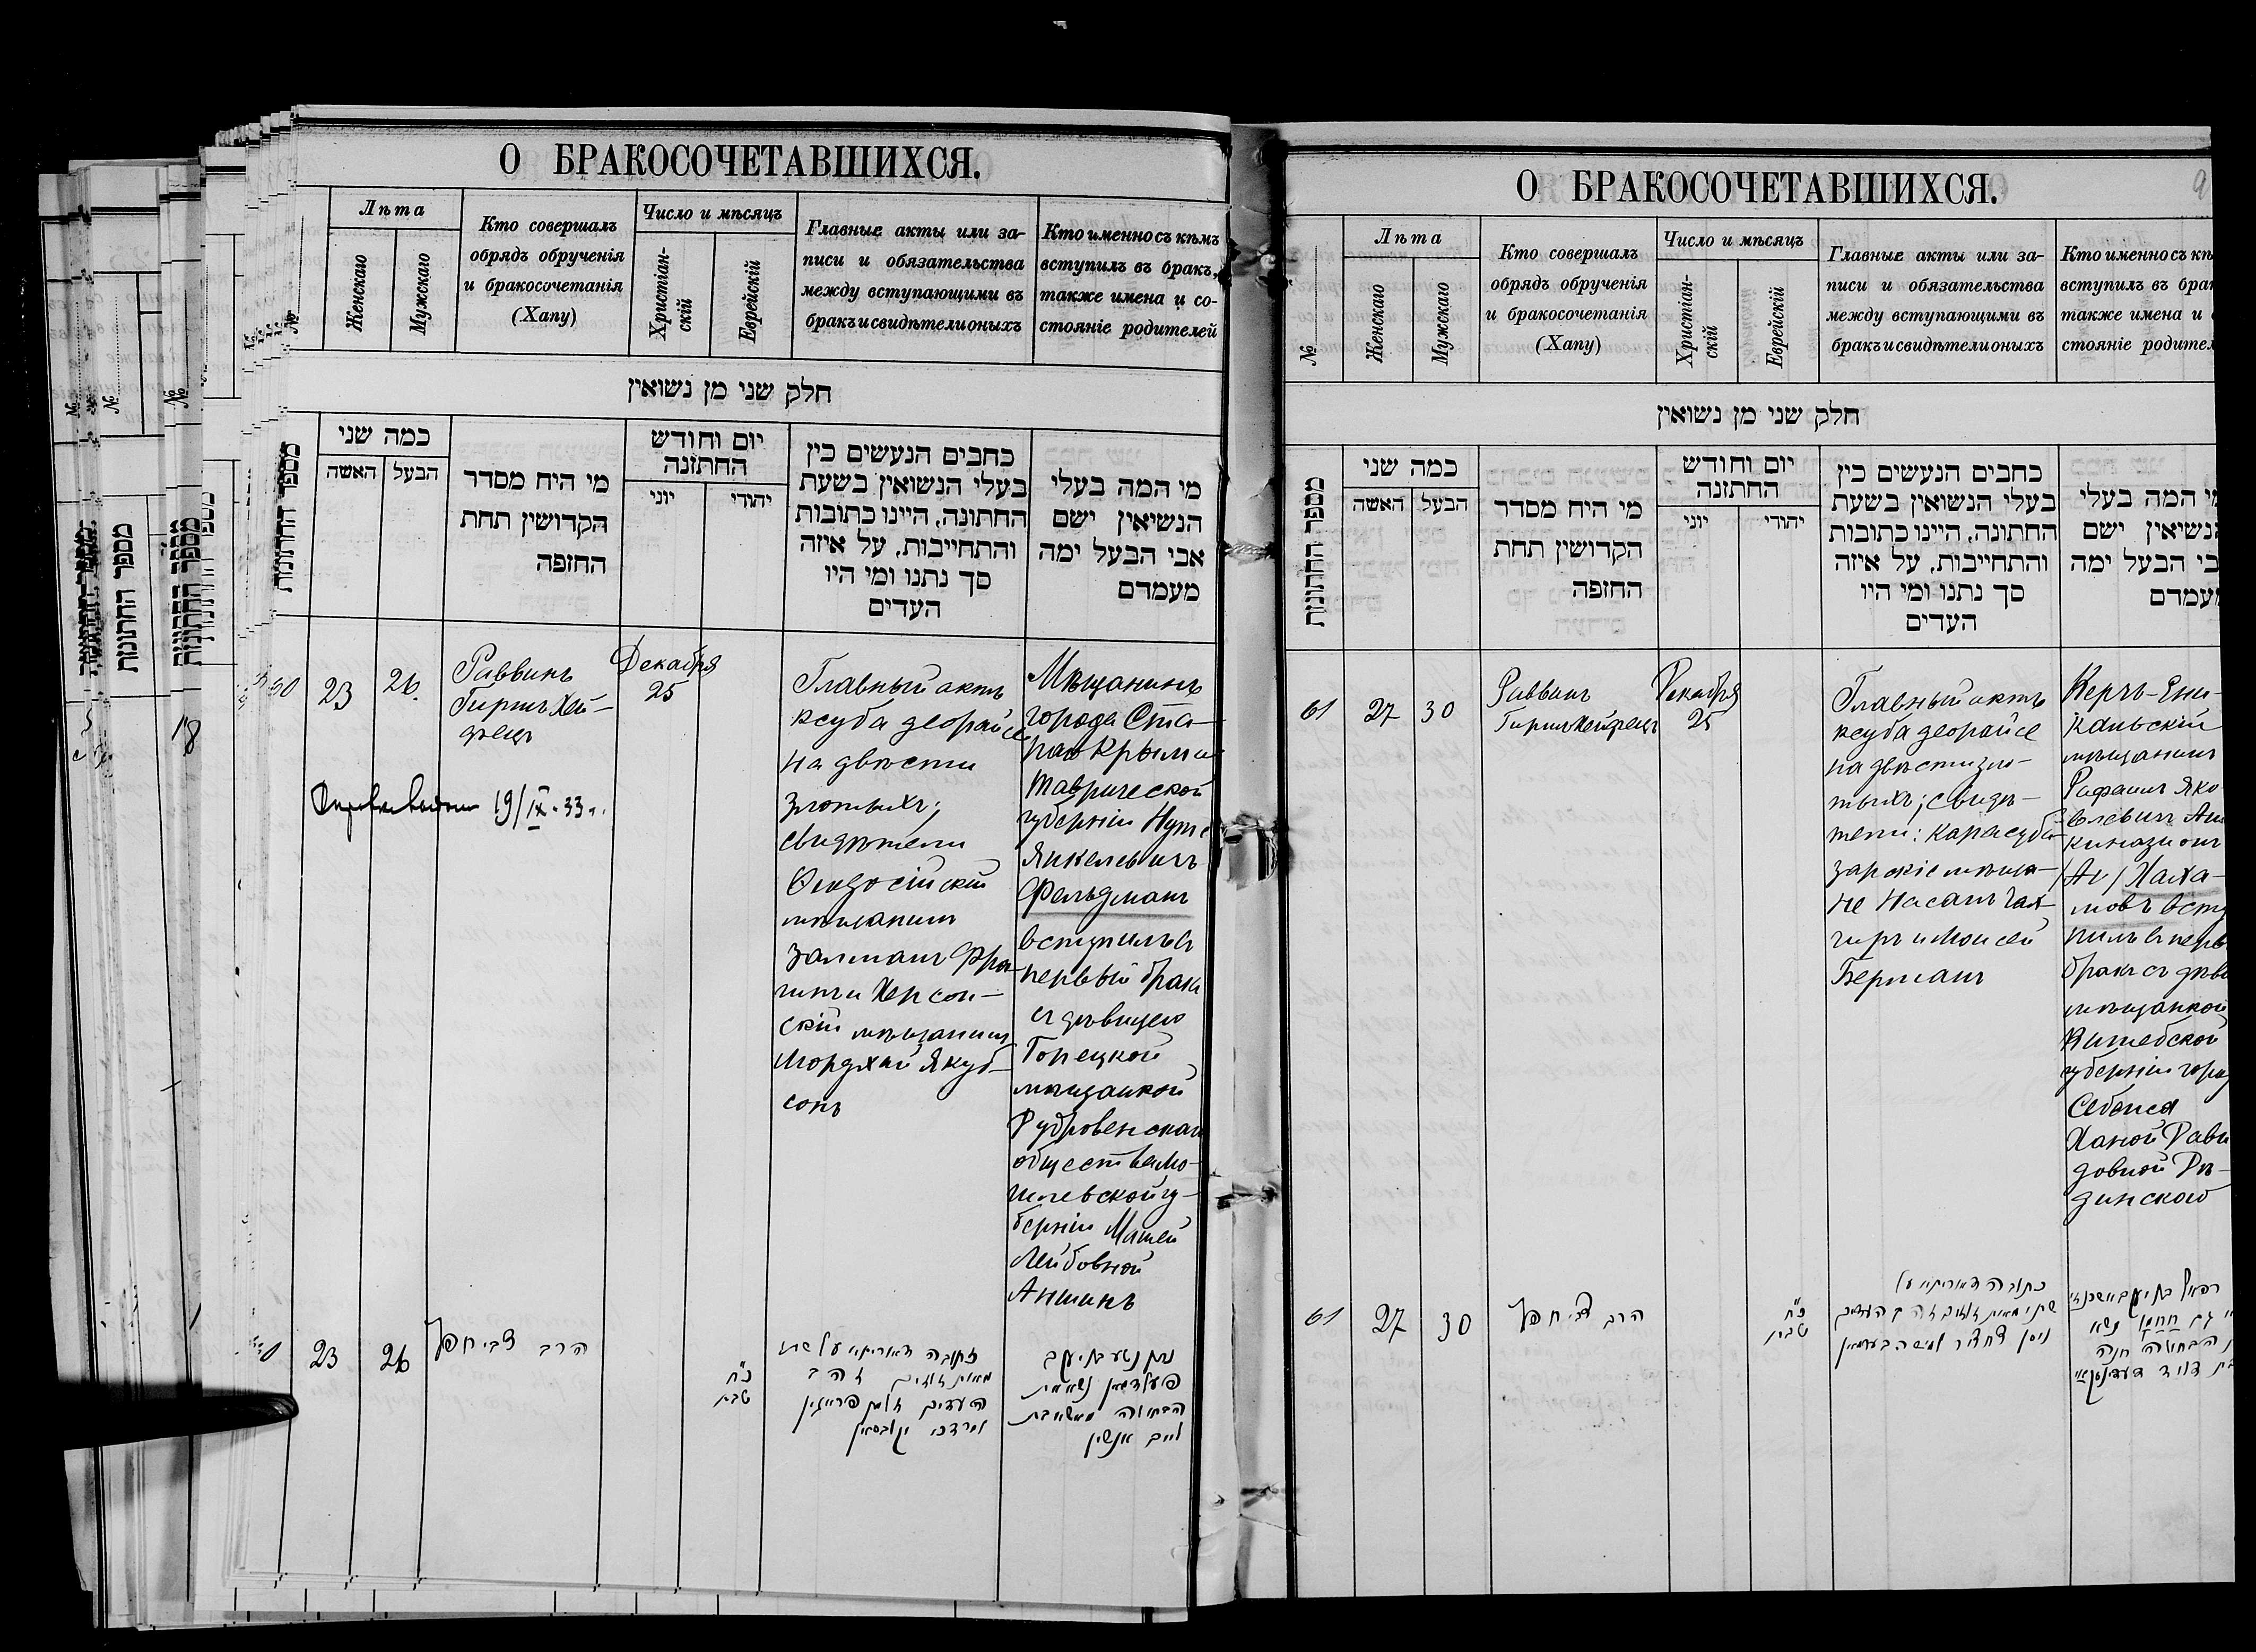 О БРАКОСОЧЕТАВШИХСЯ.
№
Лѣта
Женскаго
Мужскаго
Кто совершалъ
обрядъ обрученія
и бракосочетанія
(Хапу)
Число и мѣсяцъ
Христіан-
скій
Еврейскій
Главные акты или за-
писи и обязательства
между вступающими въ
бракъ и свидѣтели оныхъ
Кто именно съ кѣмъ
вступилъ въ бракъ,
также имена и со-
стояніе родителей
חלק שני מן נשואין
מספר החתונות
כמה שני
האשה
הבעל
מי היח מסדר
הקדושין תחת
החופה
יום וחודש
החתונה
יוני
יהודי
כתבים הנעשים בין
בעלי הנשואין בשעת
החתונה, היינו כתובות
והתחייבות, על איזה
סך נתנו ומי היו
העדים
מי המה בעלי
הנשיאין ישם
אבי הבעל ימה
מעמדם
60
23
26.
Раввинъ
Гиршъ Хей-
фецъ
Декабря
25
19/IX-33 г.
Главный актъ
ксуба деорайсе
на двѣсти
злотыхъ;
свидѣтели
Ѳеодосійскій
мѣщанинъ
Залманъ Фра-
гинъ и Херсон-
скій мѣщанинъ
Мордхай Якуб-
сонъ
Мѣщанинъ
города Ста-
раго Крыма
Таврической
губерніи Нута
Янкелевичъ
Фельдманъ
вступилъ въ
первый бракъ
съ дѣвицею
Горецкой
мѣщанкой
Дубровенскаго
общества Мо-
гилевской гу-
берніи Машей
Лейбовной
Аншинъ
23
26
הרב צבי חפץ
כ"ח
טבת
כתובה דאורייתא על שתי
מאות זהובים
העדים זלמן פרייגין
ומרדכי יקובסאן
נתן נטע בן יעקב
פעלדמאן נשא את
הבתולה מאשא בת
לייב אנשין
О БРАКОСОЧЕТАВШИХСЯ.
9
№
Лѣта
Женскаго
Мужскаго
Кто совершалъ
обрядъ обрученія
и бракосочетанія
(Хапу)
Число и мѣсяцъ
Христіан-
скій
Еврейскій
Главные акты или за-
писи и обязательства
между вступающими въ
бракъ и свидѣтели оныхъ
Кто именно съ кѣ
вступилъ въ бра
также имена и
стояніе родител
חלק שני מן נשואין
מספר החתונות
כמה שני
האשה
הבעל
מי היח מסדר
הקדושין תחת
החופה
יום וחודש
החתונה
יוני
יהודי
כתבים הנעשים בין
בעלי הנשואין בשעת
החתונה, היינו כתובות
והתחייבות, על איזה
סך נתנו ומי היו
העדים
המה בעלי
נשיאין ישם
בי הבעל ימה
מעמדם
61
27
30
Раввинъ
Гиршъ Хейфецъ
Декабря
25
Главный актъ
ксуба деорайсе
на двѣсти зло-
тыхъ; свидѣ-
тели: Карасуба-
зарскіе мѣща-
не Насанъ Чах-
чиръ и Моисей
Берманъ
Керчь-Ени-
кальскій
мѣщанинъ
Рафаилъ Яко-
влевичъ Аш-
кинази онъ
Хаха-
мовъ всту
пилъ въ перв
бракъ съ дѣви
мѣщанкой
Витебской
губерніи горо
Себежа
Ханой Дави-
довной Рѣ-
зинскою
61
27
30
הרב צבי חפץ
כ"ח
טבת
כתובה דאורייתא על
שתי מאות זהובים העדים
ניסן ומשה בערמאן
רפאל בן יעקב אשכנזי
גם חחמו נשא
הבתולה חנה
בת דוד